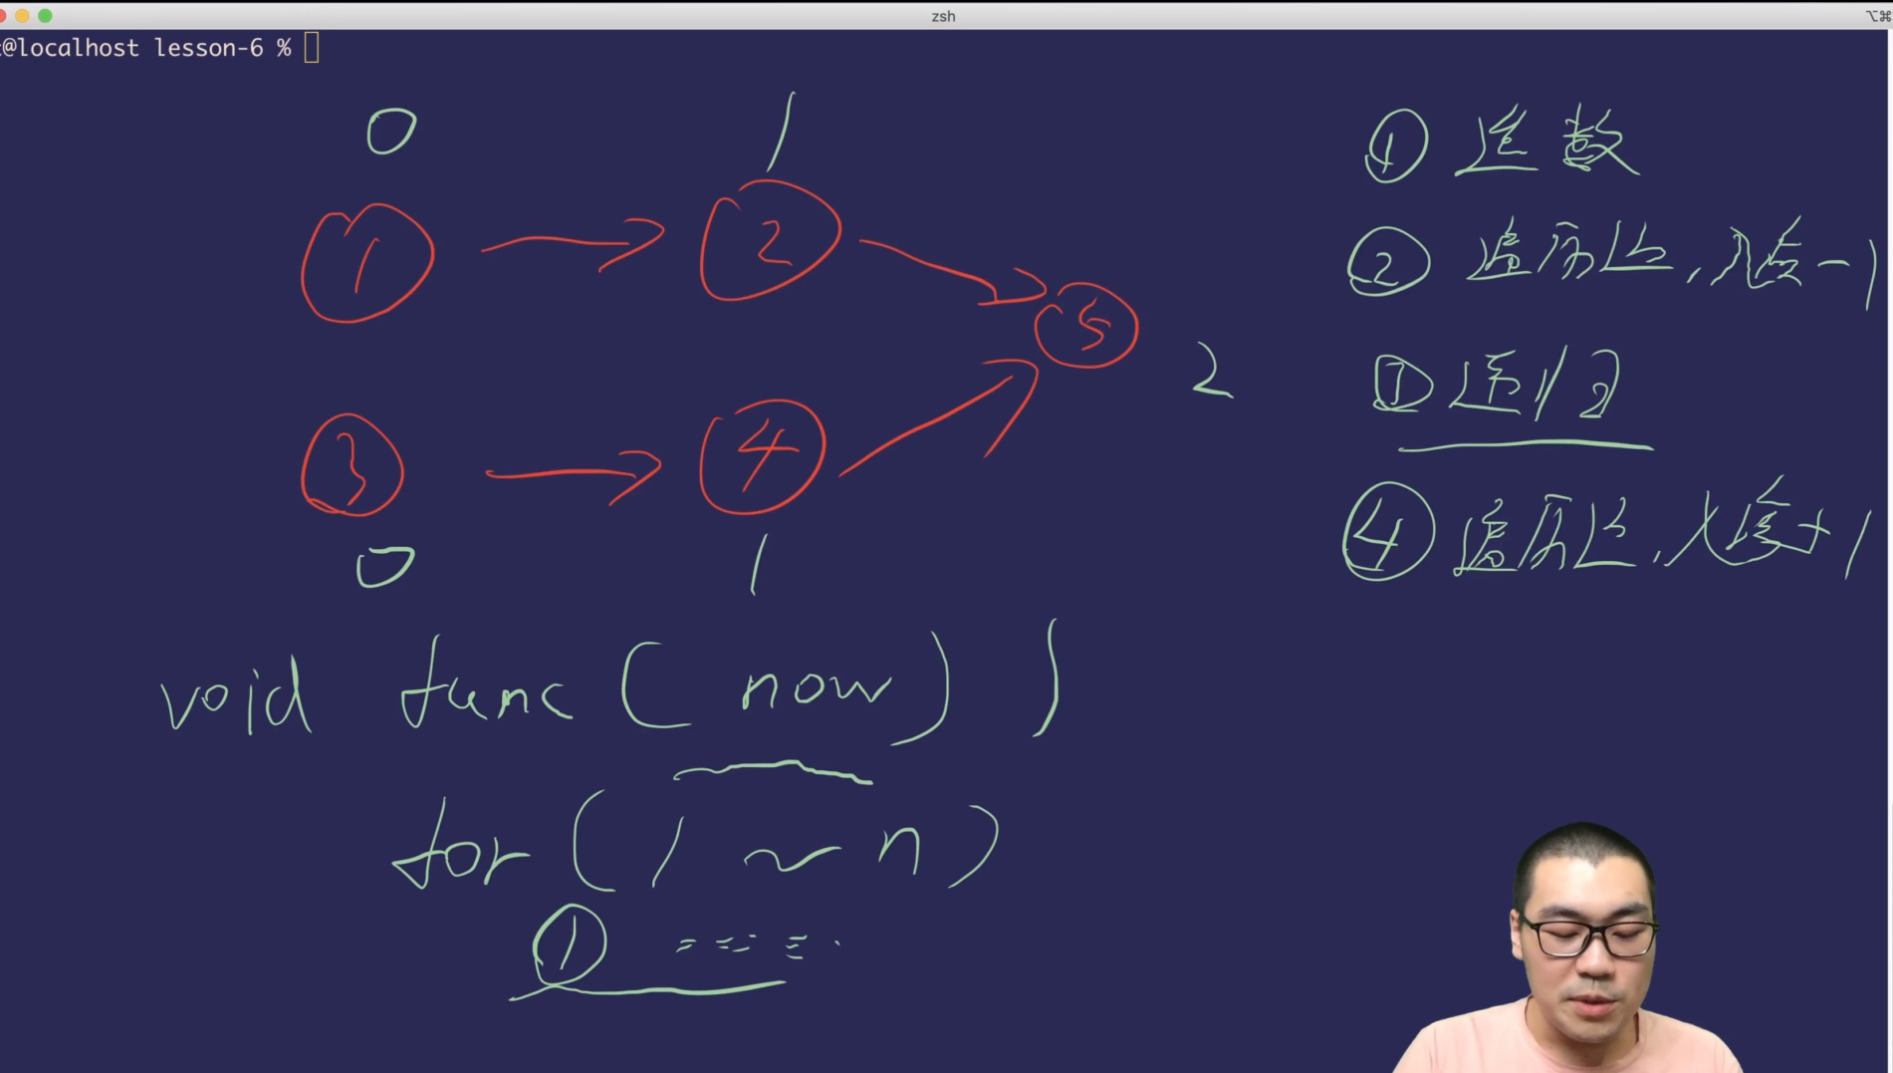 zsh
⌥⌘
@localhost lesson-6 %
0 1
1 2
5
2
3 4
0 1
① 选数
② 遍历边,入度-1
递归
④ 遍历边,入度+1
void func(now) {
for(1 ~ n)
①